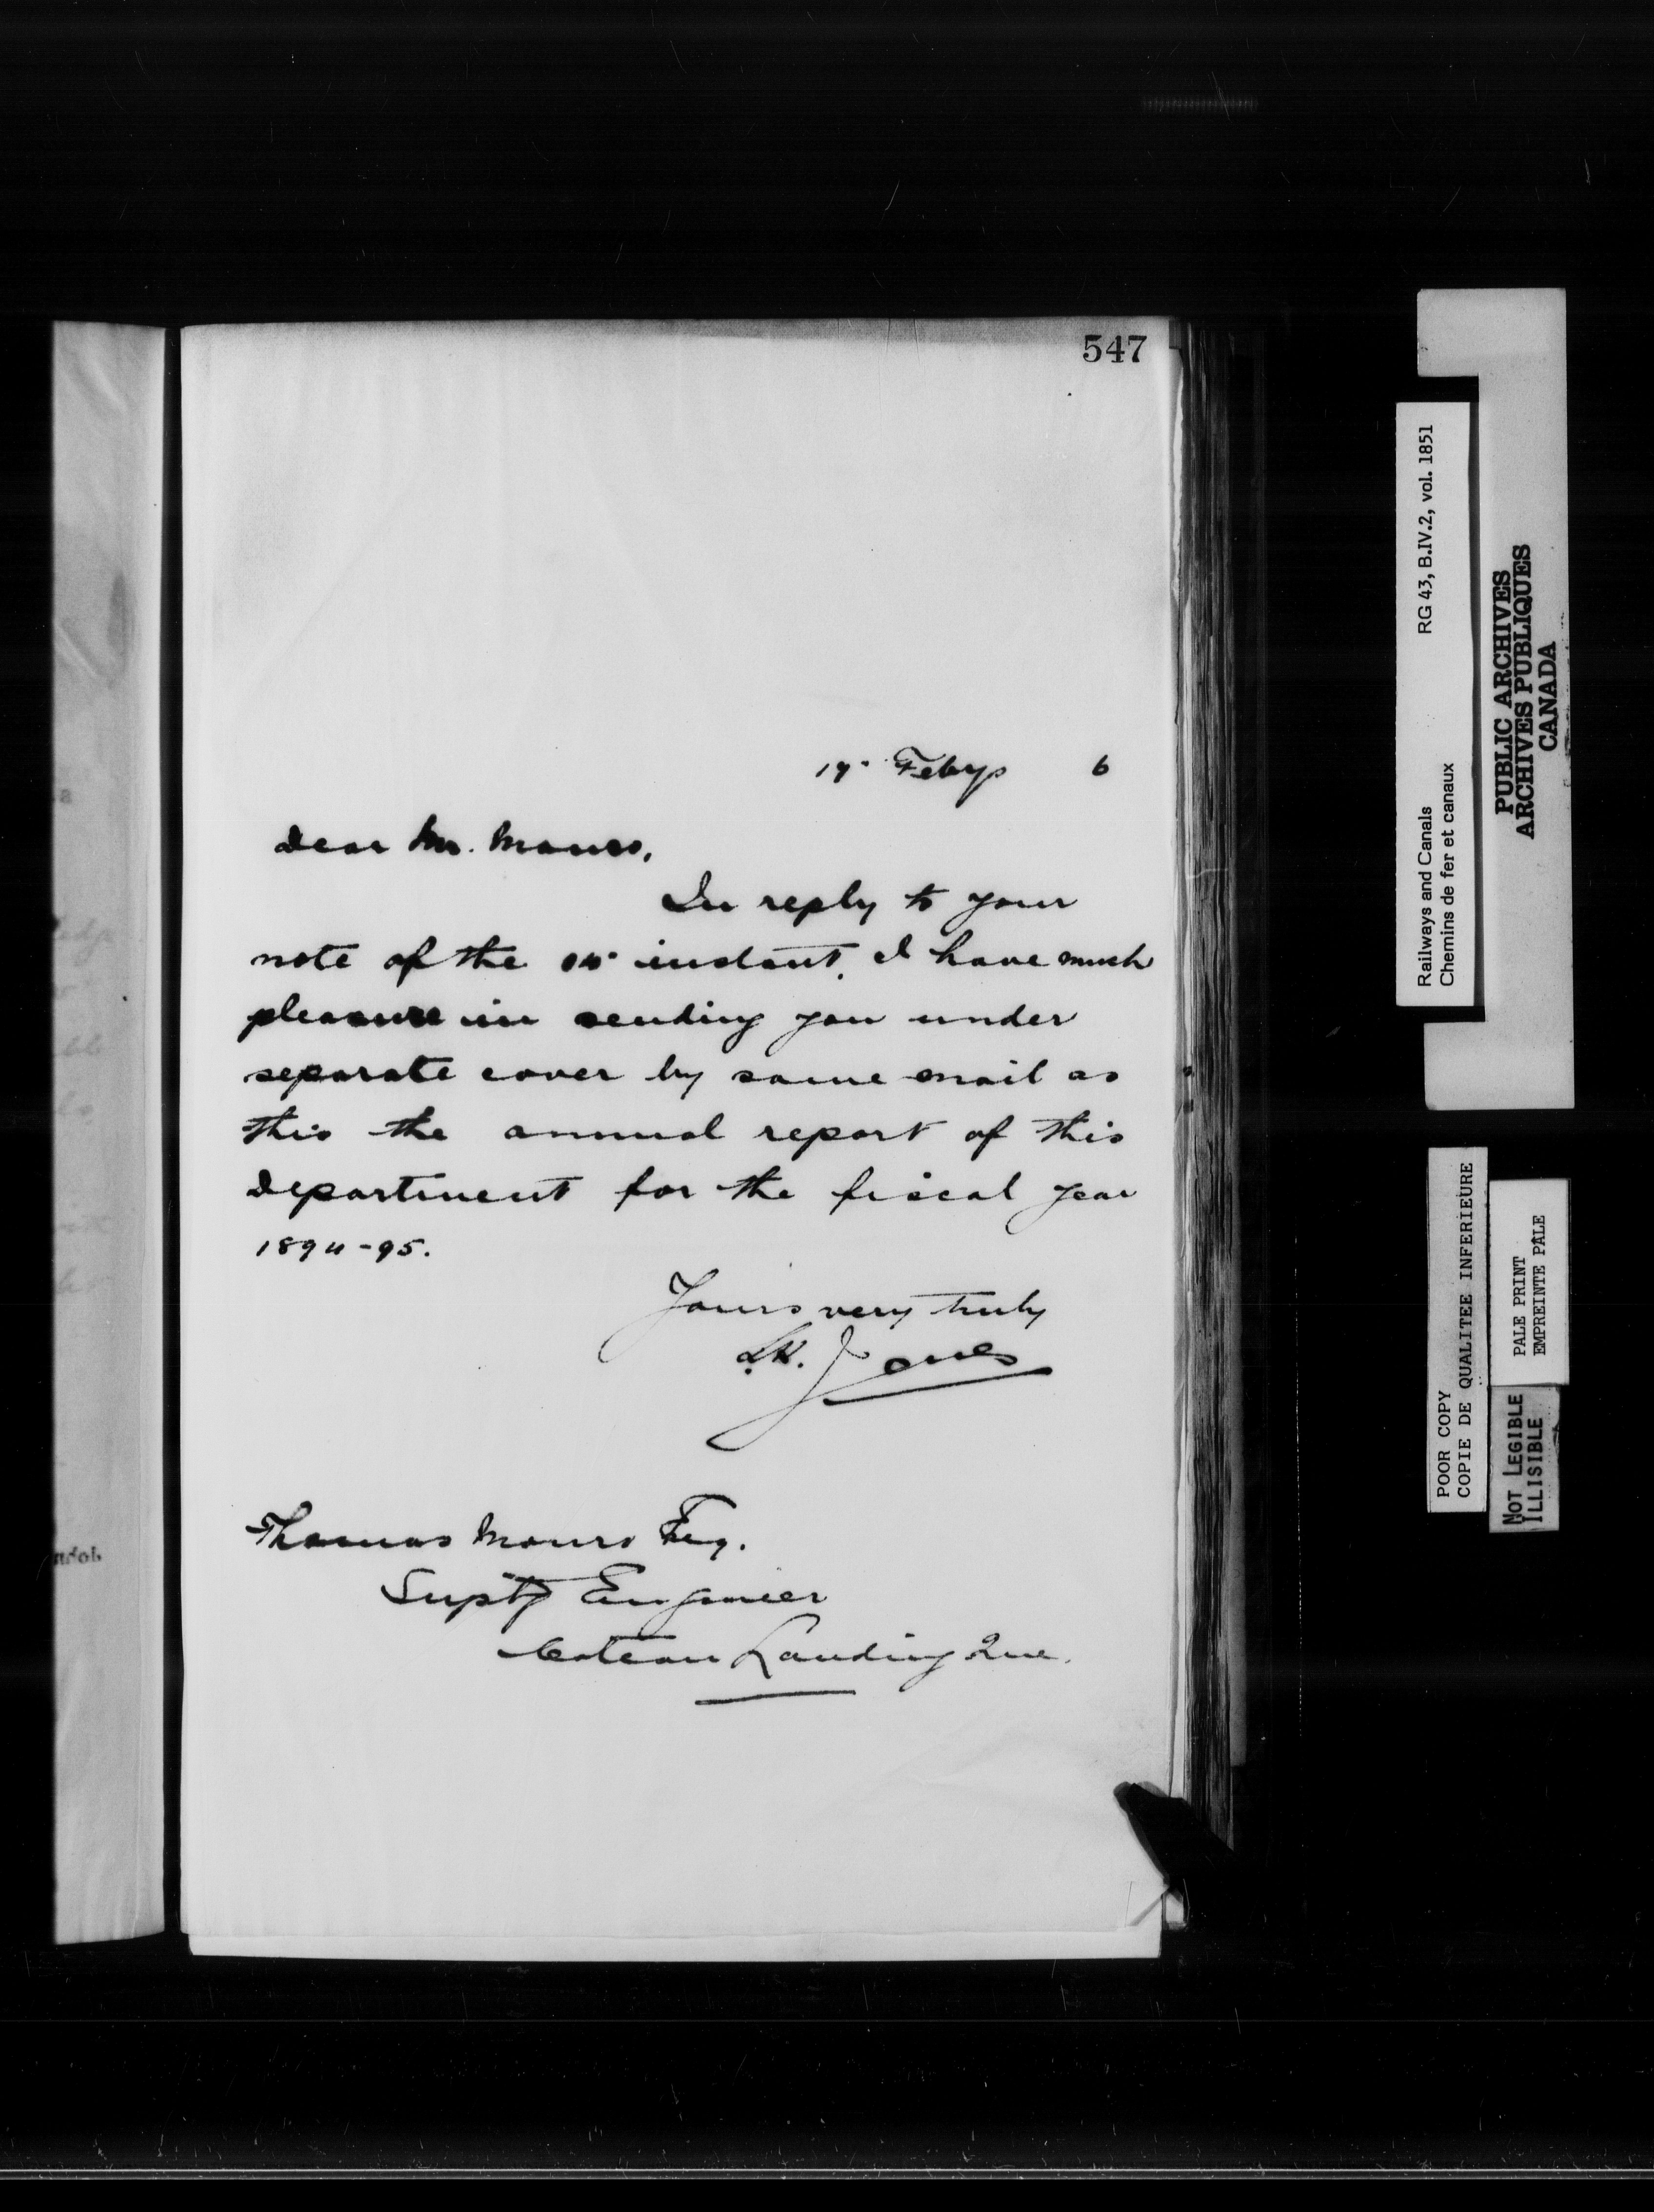 547
17 Feby 6
Dear Mr. Monro,
In reply to your
note of the instant, I have much
pleasure in sending you under
separate cover by same mail as
this the annual report of this
Department for the fiscal year
1894-95.
Yours very truly
L.K. Jones
Thomas Monro Esq.
Suptg Engineer
Coteau Landing Que.
Railways and Canals RG 43, B.IV.2, vol. 1851
Chemins de fer et canaux
PUBLIC ARCHIVES
ARCHIVES PUBLIQUES
CANADA
POOR COPY
COPIE DE QUALITEE INFERIEURE
PALE PRINT
EMPREINTE PÂLE
NOT LEGIBLE
ILLISIBLE